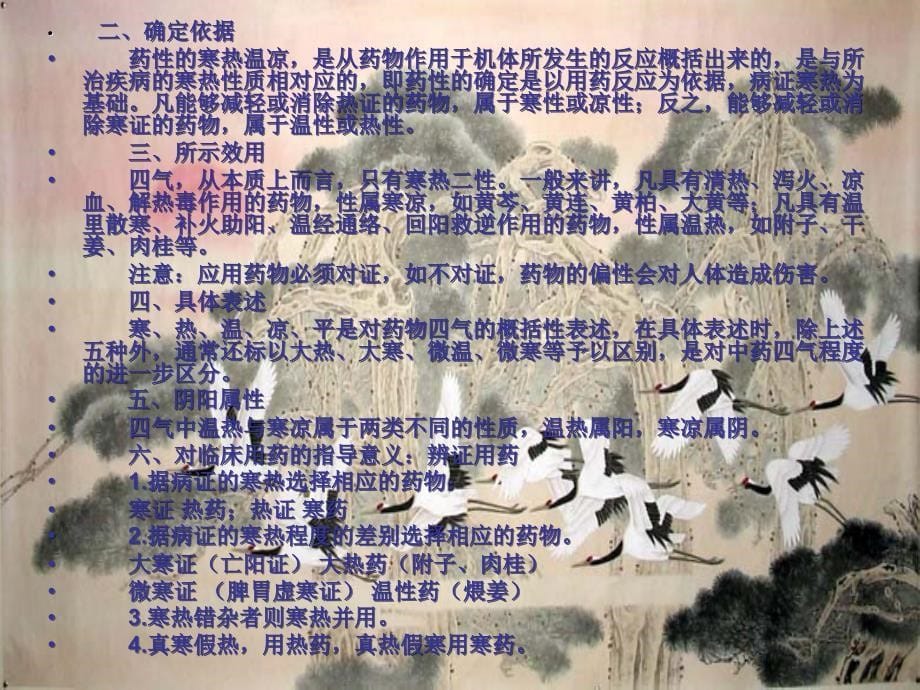 • 二、确定依据
• 药性的寒热温凉，是从药物作用于机体所发生的反应概括出来的，是与所
治疾病的寒热性质相对应的，即药性的确定是以用药反应为依据，病证寒热为
基础。凡能够减轻或消除热证的药物，属于寒性或凉性；反之，能够减轻或消
除寒证的药物，属于温性或热性。
• 三、所示效用
• 四气，从本质上而言，只有寒热二性。一般来讲，凡具有清热、泻火、凉
血、解热毒作用的药物，性属寒凉，如黄芩、黄连、黄柏、大黄等；凡具有温
里散寒、补火助阳、温经通络、回阳救逆作用的药物，性属温热，如附子、干
姜、肉桂等。
• 注意：应用药物必须对证，如不对证，药物的偏性会对人体造成伤害。
• 四、具体表述
• 寒、热、温、凉、平是对药物四气的概括性表述，在具体表述时，除上述
五种外，通常还标以大热、大寒、微温、微寒等予以区别，是对中药四气程度
的进一步区分。
• 五、阴阳属性
• 四气中温热与寒凉属于两类不同的性质，温热属阳，寒凉属阴。
• 六、对临床用药的指导意义：辨证用药
• 1.据病证的寒热选择相应的药物。
• 寒证 热药；热证 寒药
• 2.据病证的寒热程度的差别选择相应的药物。
• 大寒证（亡阳证） 大热药（附子、肉桂）
• 微寒证 （脾胃虚寒证） 温性药（煨姜）
• 3.寒热错杂者则寒热并用。
• 4.真寒假热，用热药，真热假寒用寒药。